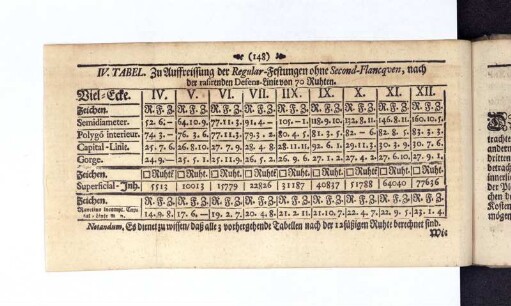 (148)
IV. TABEL. Zu Auffreissung der Regular-Festungen ohne Second-Flancqven, nach
der rasirenden Defens-Linie von 70 Ruhten.
Viel-Ecke. IV. V. VI. VII. IIX. IX. X. XI. XII.
Zeichen. R. F. Z. R. F. Z. R. F. Z. R. F. Z. R. F. Z. R. F. Z. R. F. Z. R. F. Z. R. F. Z.
Semidiameter. 52. 6.— 64. 10. 9. 77. 11. 3. 91. 4.— 105.—1. 118. 9. 10. 132. 8. 11. 146. 8. 11. 160. 10. 5.
Polygō interieur. 74. 3.— 76. 3. 6. 77. 11. 3. 79. 3. 2. 80. 4. 5. 81. 3. 5. 82.—6. 82. 8. 5. 83. 3. 1.
Capital-Linie. 25. 7. 6. 26. 8. 10. 27. 7. 9. 28. 4. 8. 28. 11. 11. 29. 6. 1. 29. 11. 3. 30. 3. 9. 30. 7. 6.
Gorge. 24. 9.— 25. 5. 1. 25. 11. 9. 26. 5. 2. 26. 9. 6. 27. 1. 2. 27. 4. 2. 27. 6. 10. 27. 9. 1.
Zeichen. □ Ruht □ Ruht □ Ruht □ Ruht □ Ruht □ Ruht □ Ruht □ Ruht □ Ruht
Superficial-Inh. 5513 10013 15779 22826 31187 40837 51788 64040 77636
Zeichen. R. F. Z. R. F. Z. R. F. Z. R. F. Z. R. F. Z. R. F. Z. R. F. Z. R. F. Z. R. F. Z.
14. 9. 8. 17. 6.— 19. 2. 7. 20. 4. 8. 21. 2. 11. 21. 10. 7. 22. 4. 7. 22. 9. 5. 23. 1. 4.
Notandum, Es dienet zu wissen/ daß alle 3 vorhergehende Tabellen nach der 12 füßigen Ruhte berechnet sind.
Wie
trachte
andern
dritten
betrach